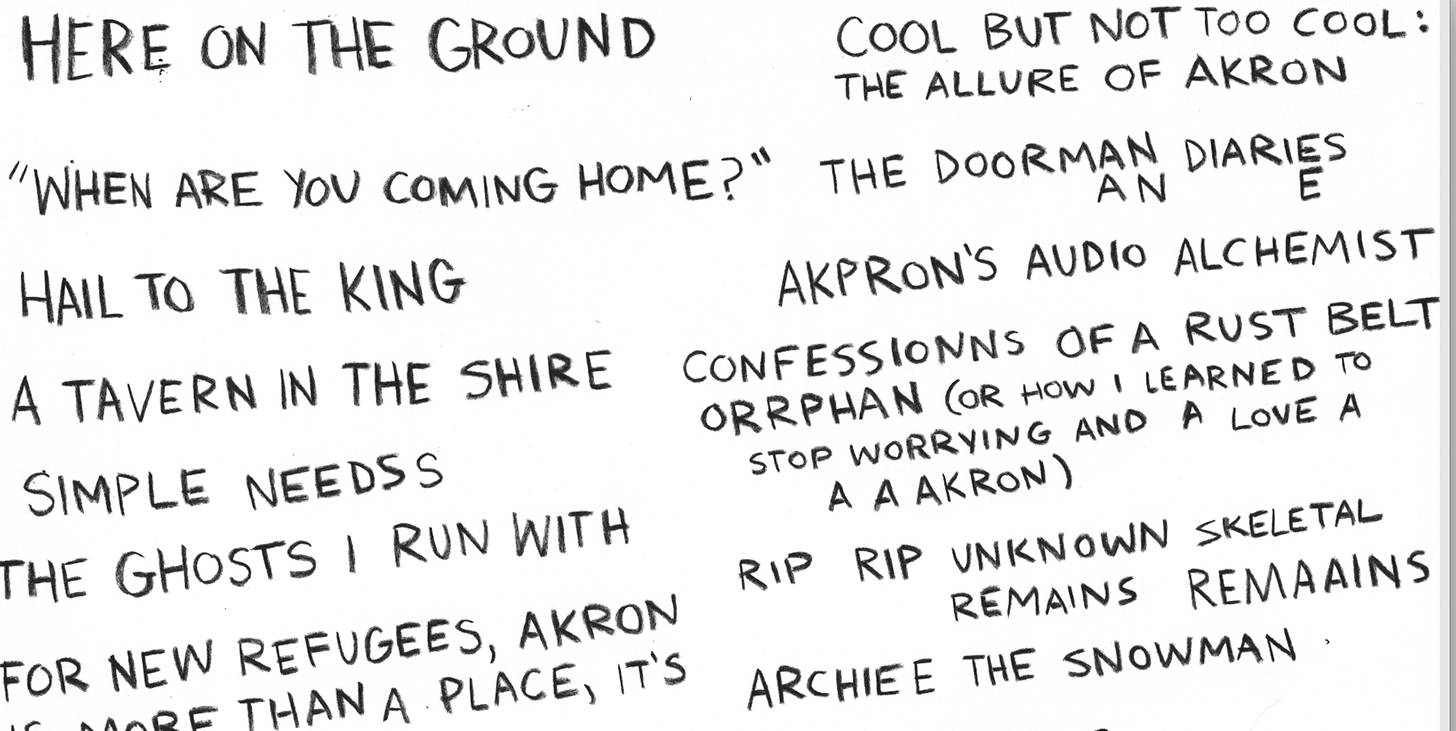 HERE ON THE GROUND
"WHEN ARE YOU COMING HOME?"
HAIL TO THE KING
A TAVERN IN THE SHIRE
SIMPLE NEEDSS S
THE GHOSTS I RUN WITH
FOR NEW REFUGEES, AKRON
IS MORE THAN A PLACE, IT'S
COOL BUT NOT TOO COOL:
THE ALLURE OF AKRON
THE DOORMAN DIARIES
AN E
AKPRON'S AUDIO ALCHEMIST
CONFESSIONNS OF A RUST BELT
ORRPHAN (OR HOW I LEARNED TO
STOP WORRYING AND A LOVE A
A A AKRON)
RIP RIP UNKNOWN SKELETAL
REMAINS REMAAINS
ARCHIEE THE SNOWMAN